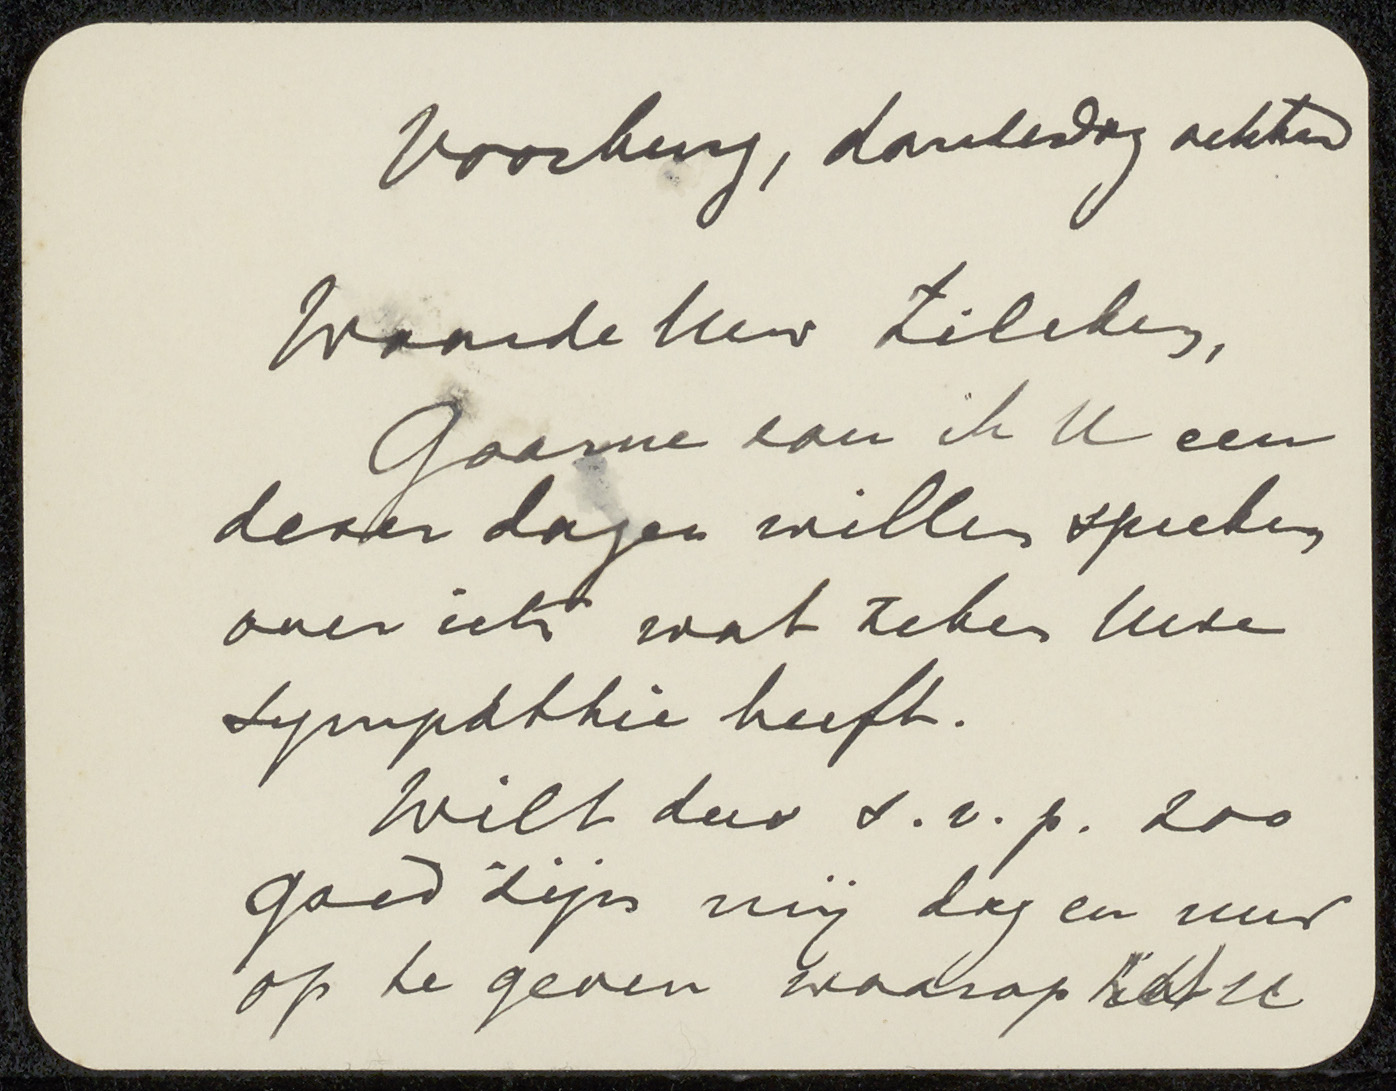 Voorburg, donderdag
Waarde Heer Zilcken,
Gaarne zou ik U een
dezer dagen willen spreken
over iets wat zeker Uwe
sympathie heeft.
Wilt dus s.v.p. zoo
goed zijn mij dag en uur
op te geven waarop het U